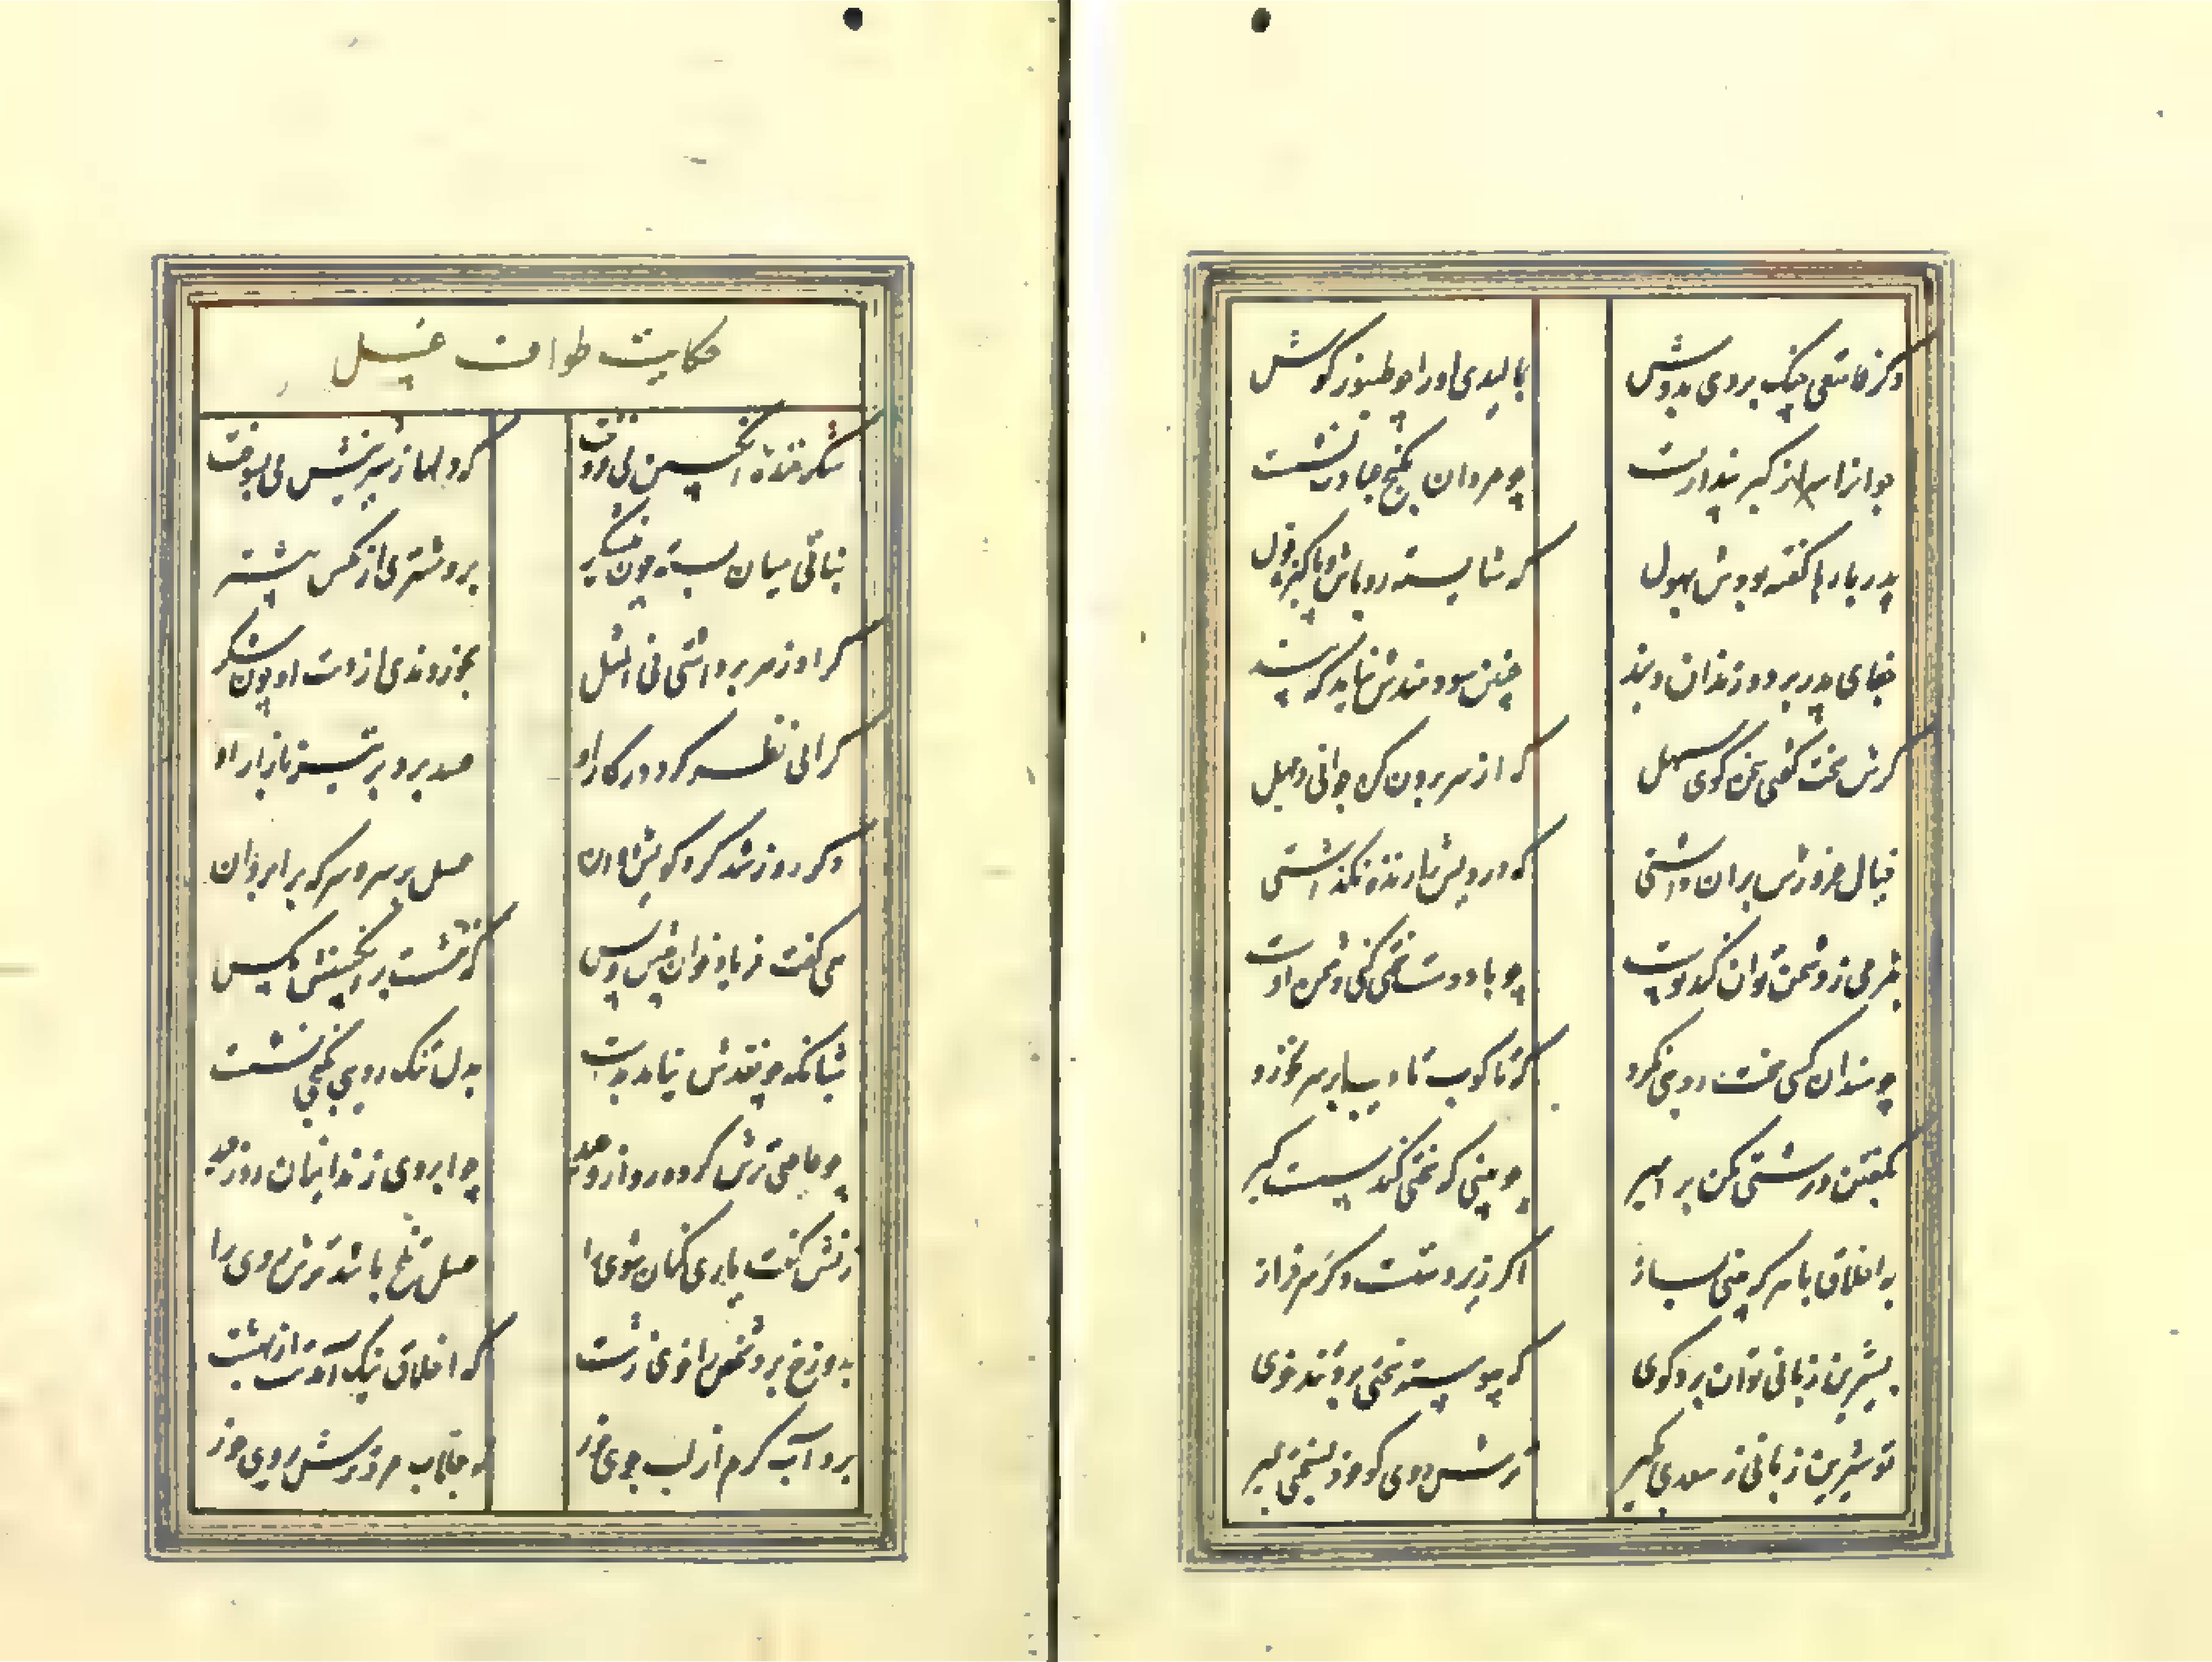 وگر فاسقی چنگ بردی بدوش بمالیدی او را چو طنبور گوش
جوانرا سر از کبر پندار مست چو مردان بکنج عبادت نشست
پدر بارها گفته بودش بهول که شایسته رو باش و پاکیزه قول
جفای پدر برد و زندان و بند چنین سودمندش نیامد که پند
گرش سخت گفتی سخن گوی سهل که از سر برون کن جوانی و جهل
خیال غرورش بران داشتی که درویش را زنده نگذاشتی
بنرمی ز دشمن توان کند پوست چو با دوست سختی کنی دشمن اوست
چو سندان کسی سخت رویی نکرد که تا کوب تادیب بر سر نخورد
بگفتن درشتی مکن بر امیر چو بینی که سختی کند سست گیر
به اخلاق با هر که بینی بساز اگر زیر دستست و گر سرفراز
بشیرین زبانی توان برد گوی که پیوسته تلخی برد تند خوی
تو شیرین زبانی ز سعدی بگیر ترش روی گو خود بتلخی بمیر
حکایت طواف عسل
شکر خنده انگبین می فروخت که دلها ز شیرینیش می بسوخت
نباتی میان بسته چون نیشکر برو مشتری از مگس بیشتر
گر او زهر برداشتی فی المثل بخوردندی از دست او چون شکر
گرانی نظر کرد در کار او حسد برد بر تیز بازار او
دگر روز شد گرد گیتی دوان عسل بر سر و سرکه بر ابروان
می گفت فریاد خوان پیش و پس که ننشست بر انگبینش مگس
شبانگه چو نقدش نیامد بدست بدل تنگ رویی بکنجی نشست
چو عاصی ترش کرده روی از وعید چو ابروی زندانیان روز عید
زنش گفت بازی کنان شوی را عسل تلخ باشد ترش روی را
بدوزخ برد شخص را خوی زشت که اخلاق نیک آمدست از بهشت
برو آب گرم از لب جوی خور نه جلاب سرد ترش روی خور